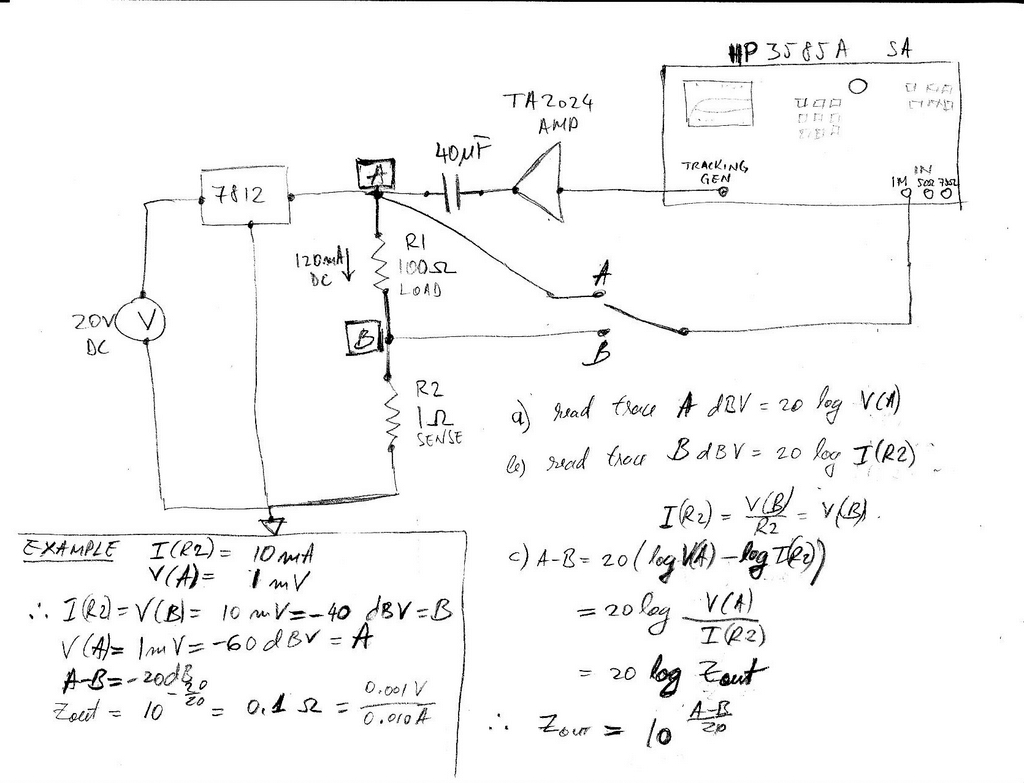 HP 3585A SA
TA2024
AMP
40µF
TRACKING
GEN
IN
1M 50Ω 75Ω
7812
A
120mA
DC
R1
100Ω
LOAD
A
20V
DC
V
B
B
R2
1Ω
SENSE
a) read trace A dBV = 20 log V(A)
b) read trace B dBV = 20 log I(R2)
I(R2) = V(B)/R2 = V(B).
c) A-B = 20 (log V(A) - log I(R2))
= 20 log V(A)/I(R2)
= 20 log Zout
∴ Zout = 10^(A-B)/20
EXAMPLE I(R2) = 10mA
V(A) = 1mV
∴ I(R2) = V(B) = 10mV = -40 dBV = B
V(A) = 1mV = -60 dBV = A
A-B = -20dB
Zout = 10^-20/20 = 0.1 Ω = 0.001V/0.010A